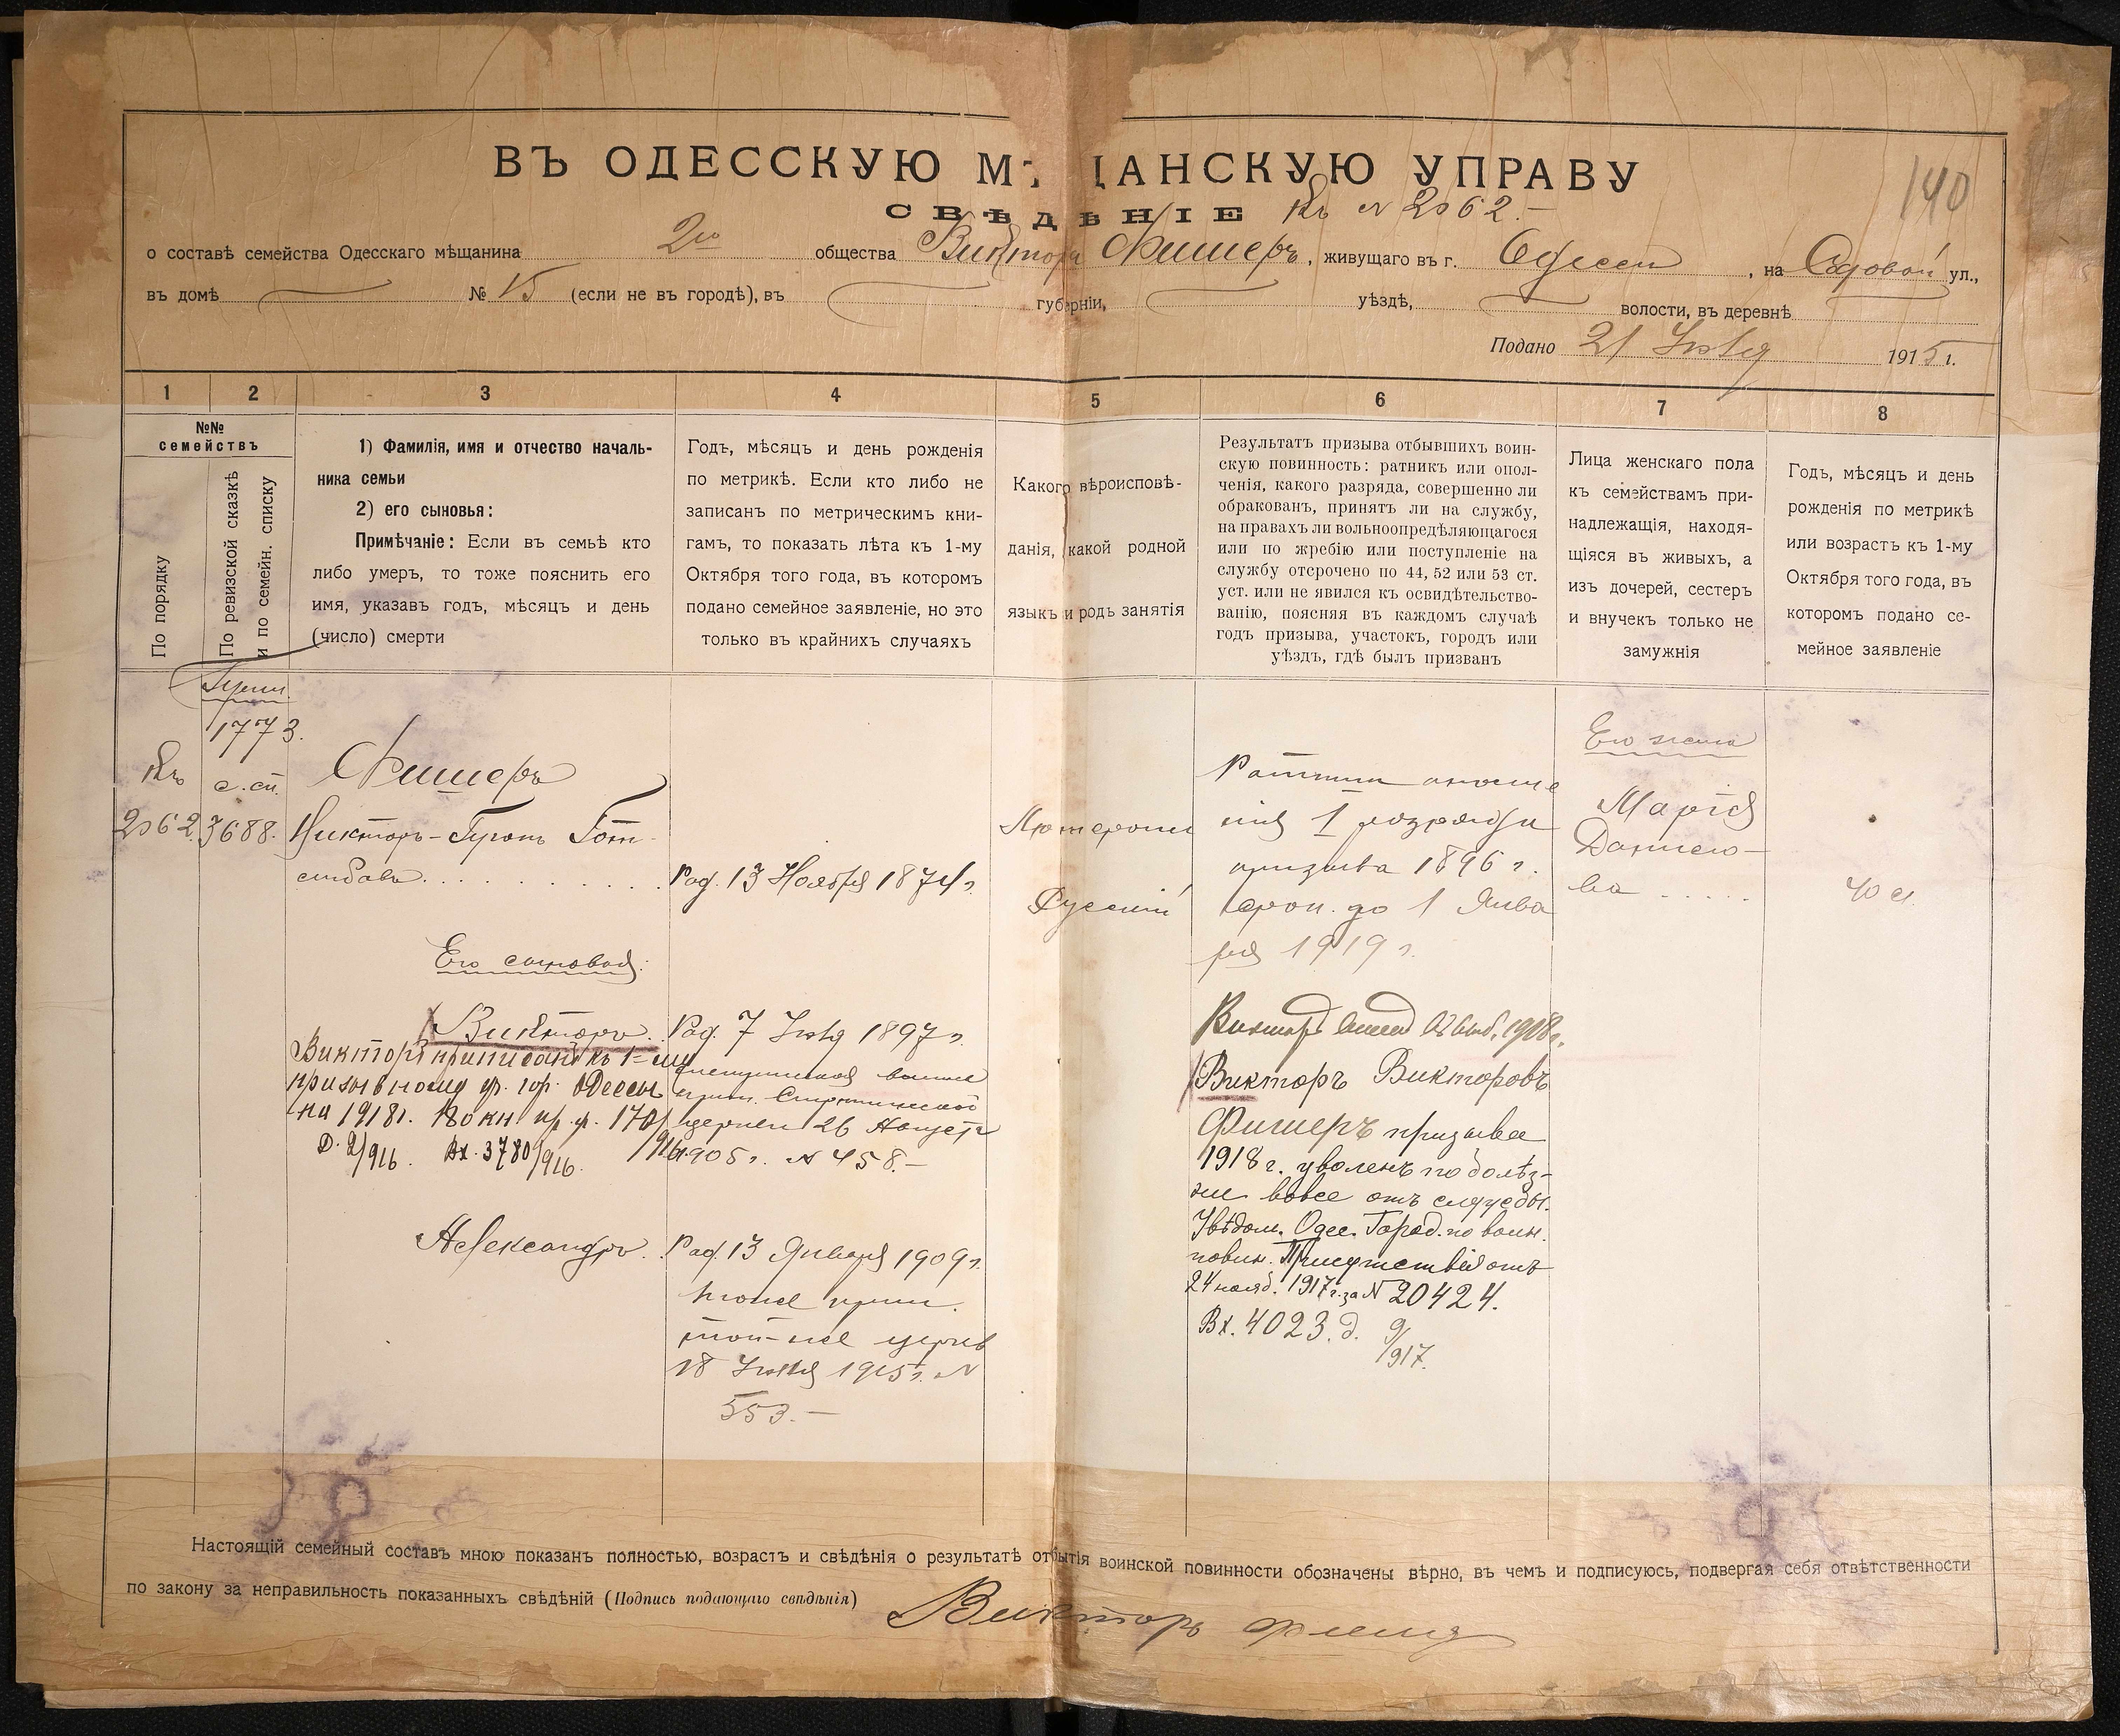 ВЪ ОДЕССКУЮ М ЩАНСКУЮ УПРАВУ
140
СВѢДѢНІЕ Къ N 2062.-
о составѣ семейства Одесскаго мѣщанина 2го общества Виктора Фишеръ, живущаго въ г. Одессѣ, на Садовой ул.,
въ домѣ № 15 (если не въ городѣ), въ губерніи, уѣздѣ, волости, въ деревнѣ
Подано 21 Іюля 1915 г.
1 2 3 4 5 6 7 8
№№
семействъ
По порядку
По ревизской сказкѣ
и по семейн. списку
1) Фамилія, имя и отчество началь-
ника семьи
2) его сыновья:
Примѣчаніе: Если въ семьѣ кто
либо умеръ, то тоже пояснить его
имя, указавъ годъ, мѣсяцъ и день
(число) смерти
Годъ, мѣсяцъ и день рожденія
по метрикѣ. Если кто либо не
записанъ по метрическимъ кни-
гамъ, то показать лѣта къ 1-му
Октября того года, въ которомъ
подано семейное заявленіе, но это
только въ крайнихъ случаяхъ
Какого вѣроисповѣ-
данія, какой родной
языкъ и родъ занятія
Результатъ призыва отбывшихъ воин-
скую повинность: ратникъ или опол-
ченія, какого разряда, совершенно ли
обракованъ, принятъ ли на службу,
на правахъ ли вольноопредѣляющагося
или по жребію или поступленіе на
службу отсрочено по 44, 52 или 53 ст.
уст. или не явился къ освидѣтельство-
ванію, поясняя въ каждомъ случаѣ
годъ призыва, участокъ, городъ или
уѣздъ, гдѣ былъ призванъ
Лица женскаго пола
къ семействамъ при-
надлежащія, находя-
щіяся въ живыхъ, а
изъ дочерей, сестеръ
и внучекъ только не
замужнія
Годъ, мѣсяцъ и день
рожденія по метрикѣ
или возрастъ къ 1-му
Октября того года, въ
которомъ подано се-
мейное заявленіе
1773.
Къ
2062.
с. сп.
3688.
Фишеръ
Викторъ-
Род. 13 Ноября 1874 г.
Его сыновья:
Викторъ. Род. 7 Іюля 1897 г.
Викторъ приписанъ къ 1-му
призывному уч. гор. Одессы
на 1918 г.
Д. 2/916. Вх. 3780/916.
церкви 26 Августа
1905 г. N 458.-
Александръ. Род. 13 Января 1909 г.
той-же церкв
18 Іюля 1915 г. N
553.-
Русскій
Ратник ополче
нія 1 разряда
призыва 1896 г.
срок. до 1 Янва
ря 1919 г.
Викторъ 1908 г.
Викторъ Викторовъ
Фишеръ призыва
1918 г. уволенъ по болѣз-
ни вовсе отъ службы.
Увѣдом. Одес. Город. по воин.
повин. Присутствія отъ
24 нояб. 1917 г. за N 20424.
Вх. 4023. д. 9/917.
Его жена
Марія
Данило-
ва .....
40 л.
Настоящій семейный составъ мною показанъ полностью, возрастъ и свѣдѣнія о результатѣ отбытія воинской повинности обозначены вѣрно, въ чемъ и подписуюсь, подвергая себя отвѣтственности
по закону за неправильность показанныхъ свѣдѣній (Подпись подающаго свѣдѣнія) Викторъ